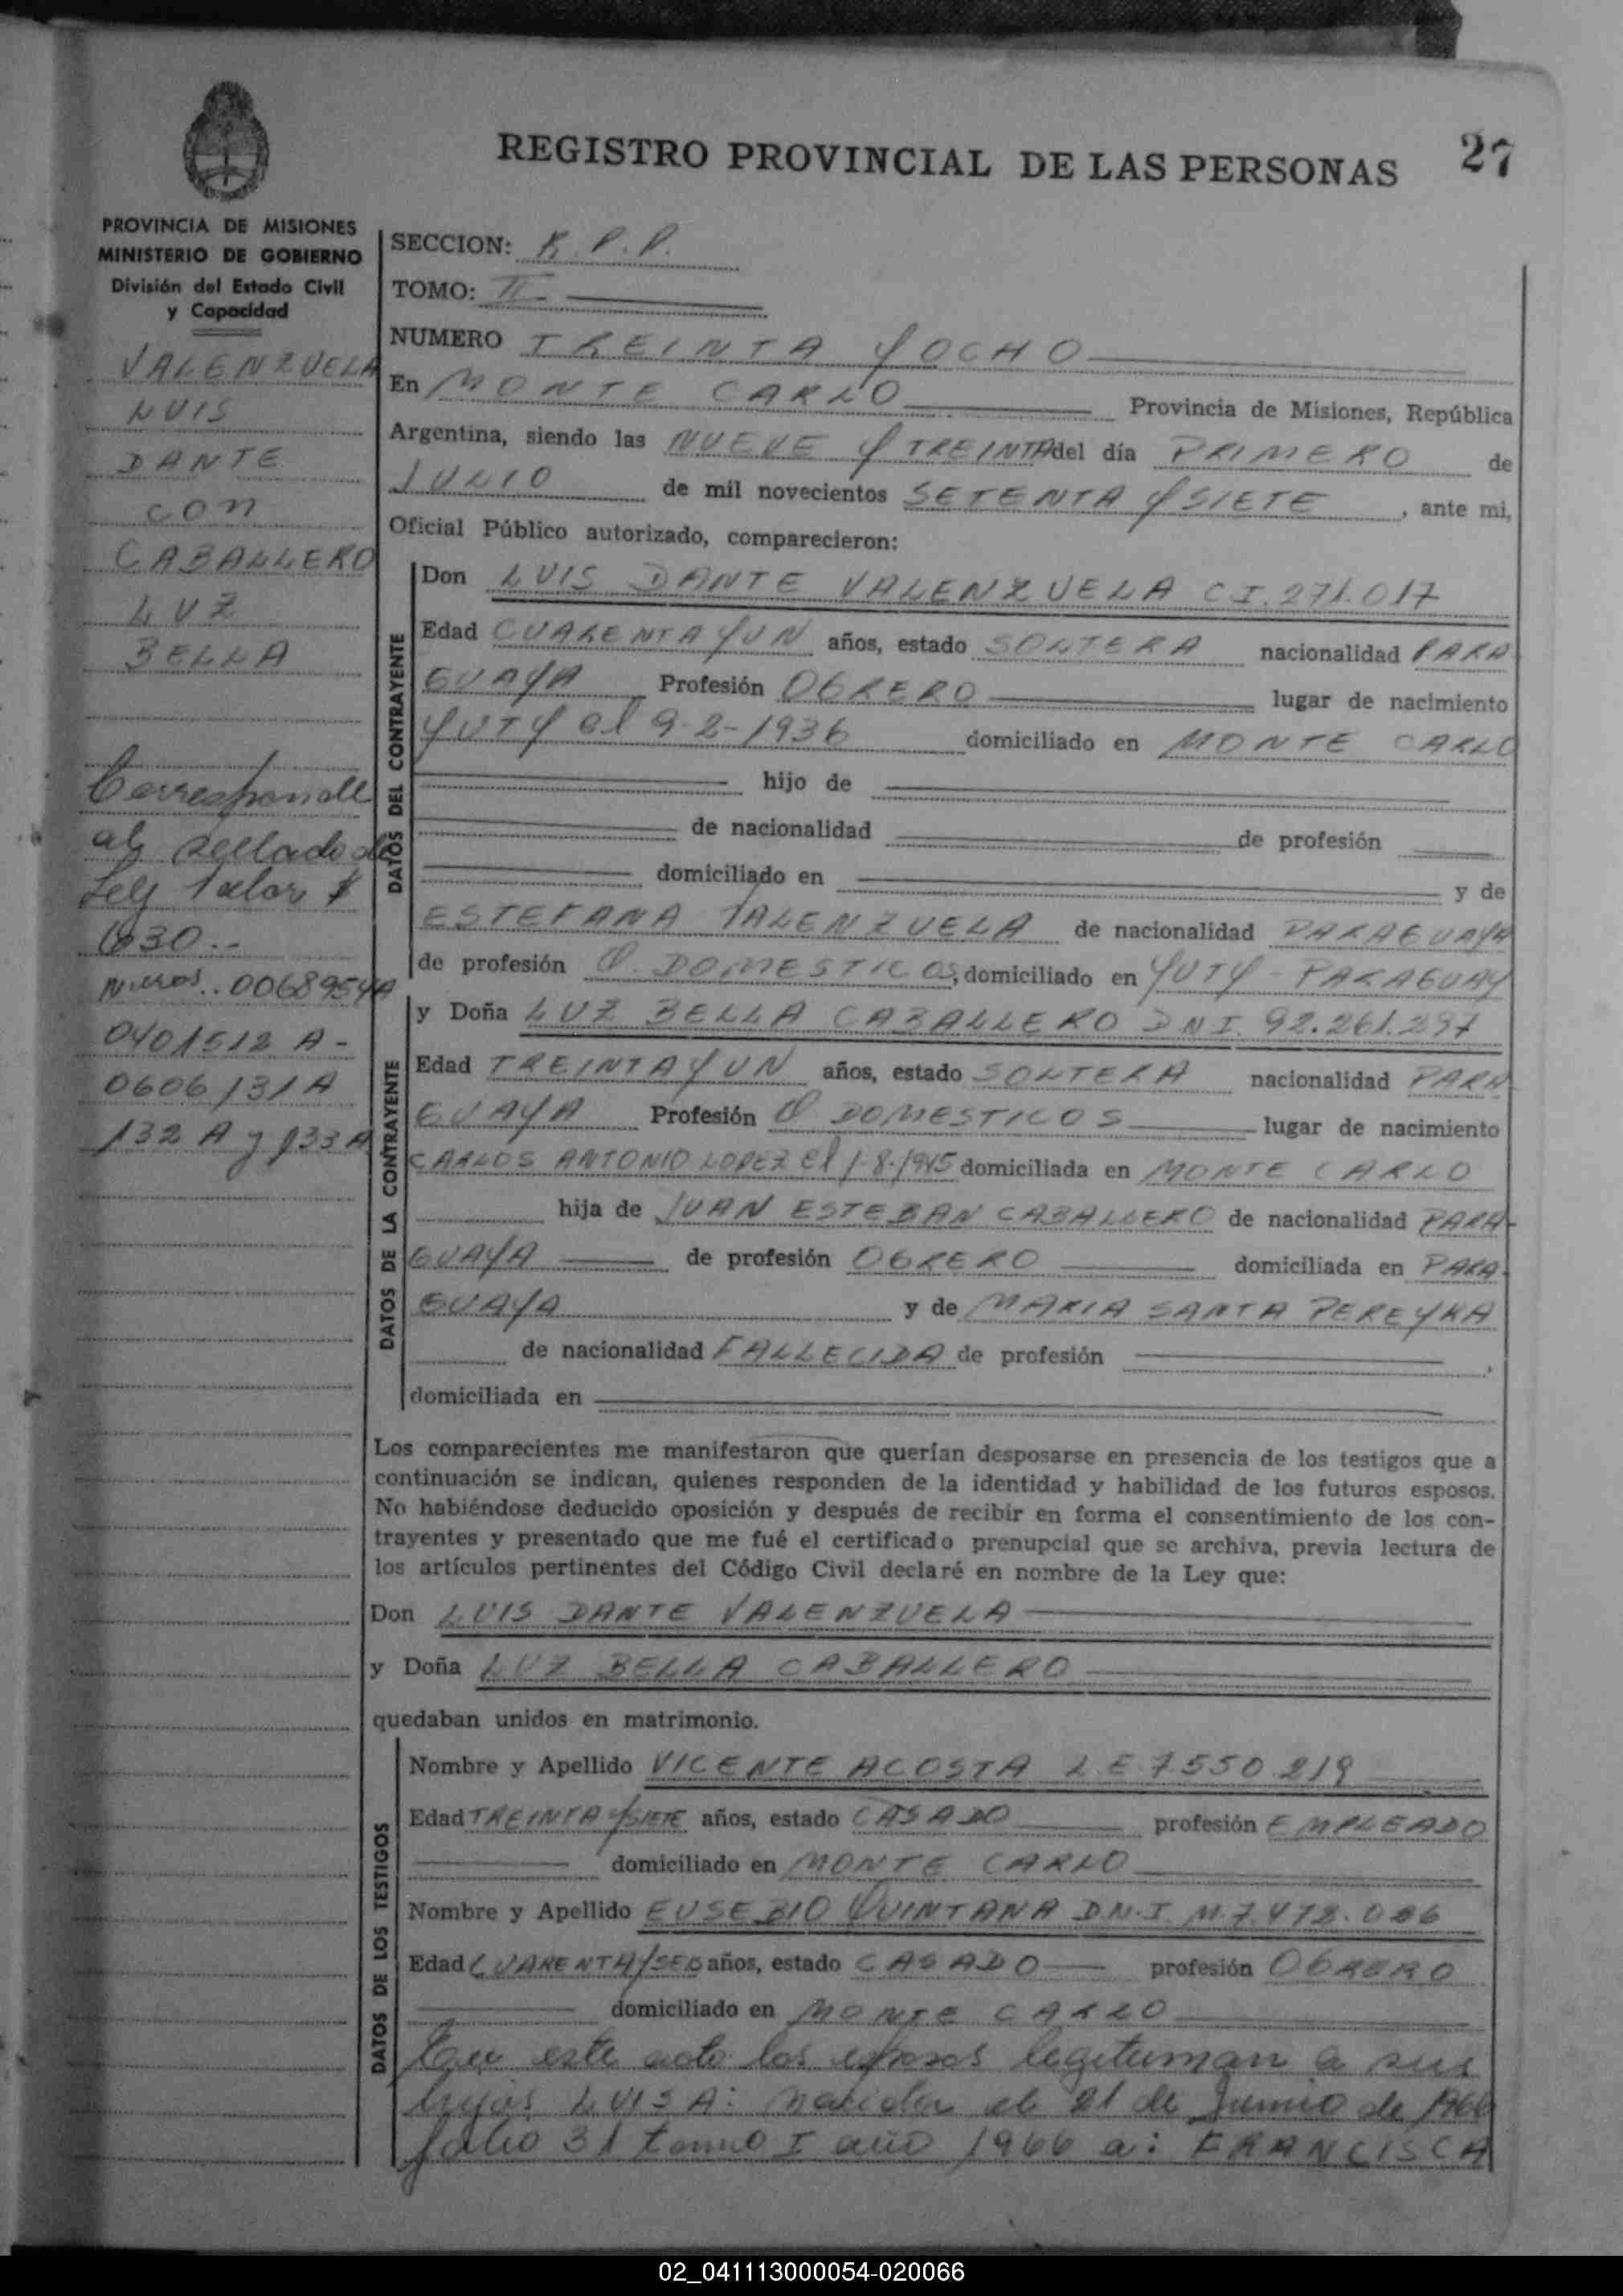 27
REGISTRO PROVINCIAL DE LAS PERSONAS
PROVINCIA DE MISIONES
MINISTERIO DE GOBIERNO
División del Estado Civil
y Capacidad
VALENZUELA
LUIS
DANTE
con
CABALLERO
LUZ
BELLA
Corresponde
al sellado de
Ley Valor $
1030.-
Nueros. 0068954A
0401512 A-
0606131A
132 A y 133A
SECCION: R.P.P.
TOMO: II
NUMERO TREINTA Y OCHO
En MONTE CARLO Provincia de Misiones, República
Argentina, siendo las NUEVE Y TREINTA del día PRIMERO de
JULIO de mil novecientos SETENTA Y SIETE, ante mi,
Oficial Público autorizado, comparecieron:
DATOS DEL CONTRAYENTE
Don LUIS DANTE VALENZUELA C.I. 271.017
Edad CUARENTA Y UN años, estado SOLTERA nacionalidad PARA
GUAYA Profesión OBRERO lugar de nacimiento
YUTY el 9-2-1936 domiciliado en MONTE CARLO
hijo de
de nacionalidad de profesión
domiciliado en y de
ESTEFANA VALENZUELA de nacionalidad PARAGUAYA
de profesión Q. DOMESTICOS, domiciliado en YUTY - PARAGUAY
DATOS DE LA CONTRAYENTE
y Doña LUZ BELLA CABALLERO DNI. 92.261.297
Edad TREINTA Y UN años, estado SOLTERA nacionalidad PARA
GUAYA Profesión Q DOMESTICOS lugar de nacimiento
CARLOS ANTONIO LOPEZ el 1-8-1945 domiciliada en MONTE CARLO
hija de JUAN ESTEBAN CABALLERO de nacionalidad PARA-
GUAYA de profesión OBRERO domiciliada en PARA
GUAYA y de MARIA SANTA PEREYRA
de nacionalidad FALLECIDA de profesión ,
domiciliada en
Los comparecientes me manifestaron que querían desposarse en presencia de los testigos que a
continuación se indican, quienes responden de la identidad y habilidad de los futuros esposos.
No habiéndose deducido oposición y después de recibir en forma el consentimiento de los con-
trayentes y presentado que me fué el certificado prenupcial que se archiva, previa lectura de
los artículos pertinentes del Código Civil declaré en nombre de la Ley que:
Don LUIS DANTE VALENZUELA
y Doña LUZ BELLA CABALLERO
quedaban unidos en matrimonio.
DATOS DE LOS TESTIGOS
Nombre y Apellido VICENTE ACOSTA L.E 7.550.219
Edad TREINTA Y SIETE años, estado CASADO profesión EMPLEADO
domiciliado en MONTE CARLO
Nombre y Apellido EUSEBIO QUINTANA D.N.I. M.7.472.
Edad CUARENTA Y SEIS años, estado CASADO profesión OBRERO
domiciliado en MONTE CARLO
En este acto los esposos legitiman a sus
hijos LUISA: nacida el 21 de Junio de 1966
folio 31 tomo I año 1966 a: FRANCISCA
02_041113000054-020066